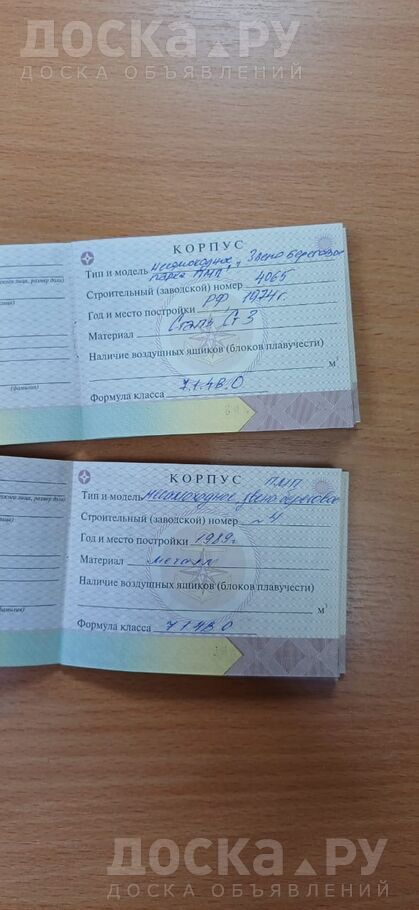 ДОСКА.РУ
ДОСКА ОБЪЯВЛЕНИЙ
КОРПУС
Тип и модель несамоходное, Звено береговое
парка ПМП,
Строительный (заводской) номер 4065
Год и место постройки РФ 1974г.
Материал Сталь Ст 3
Наличие воздушных ящиков (блоков плавучести)
м³
Формула класса 7.1.4В.0
(фамилия)
КОРПУС ПМП
Тип и модель несамоходное звено береговое
Строительный (заводской) номер 4
Год и место постройки 1989г
Материал металл
Наличие воздушных ящиков (блоков плавучести)
м³
Формула класса 7.1.4В.0
(фамилия)
ДОСКА.РУ
ДОСКА ОБЪЯВЛЕНИЙ